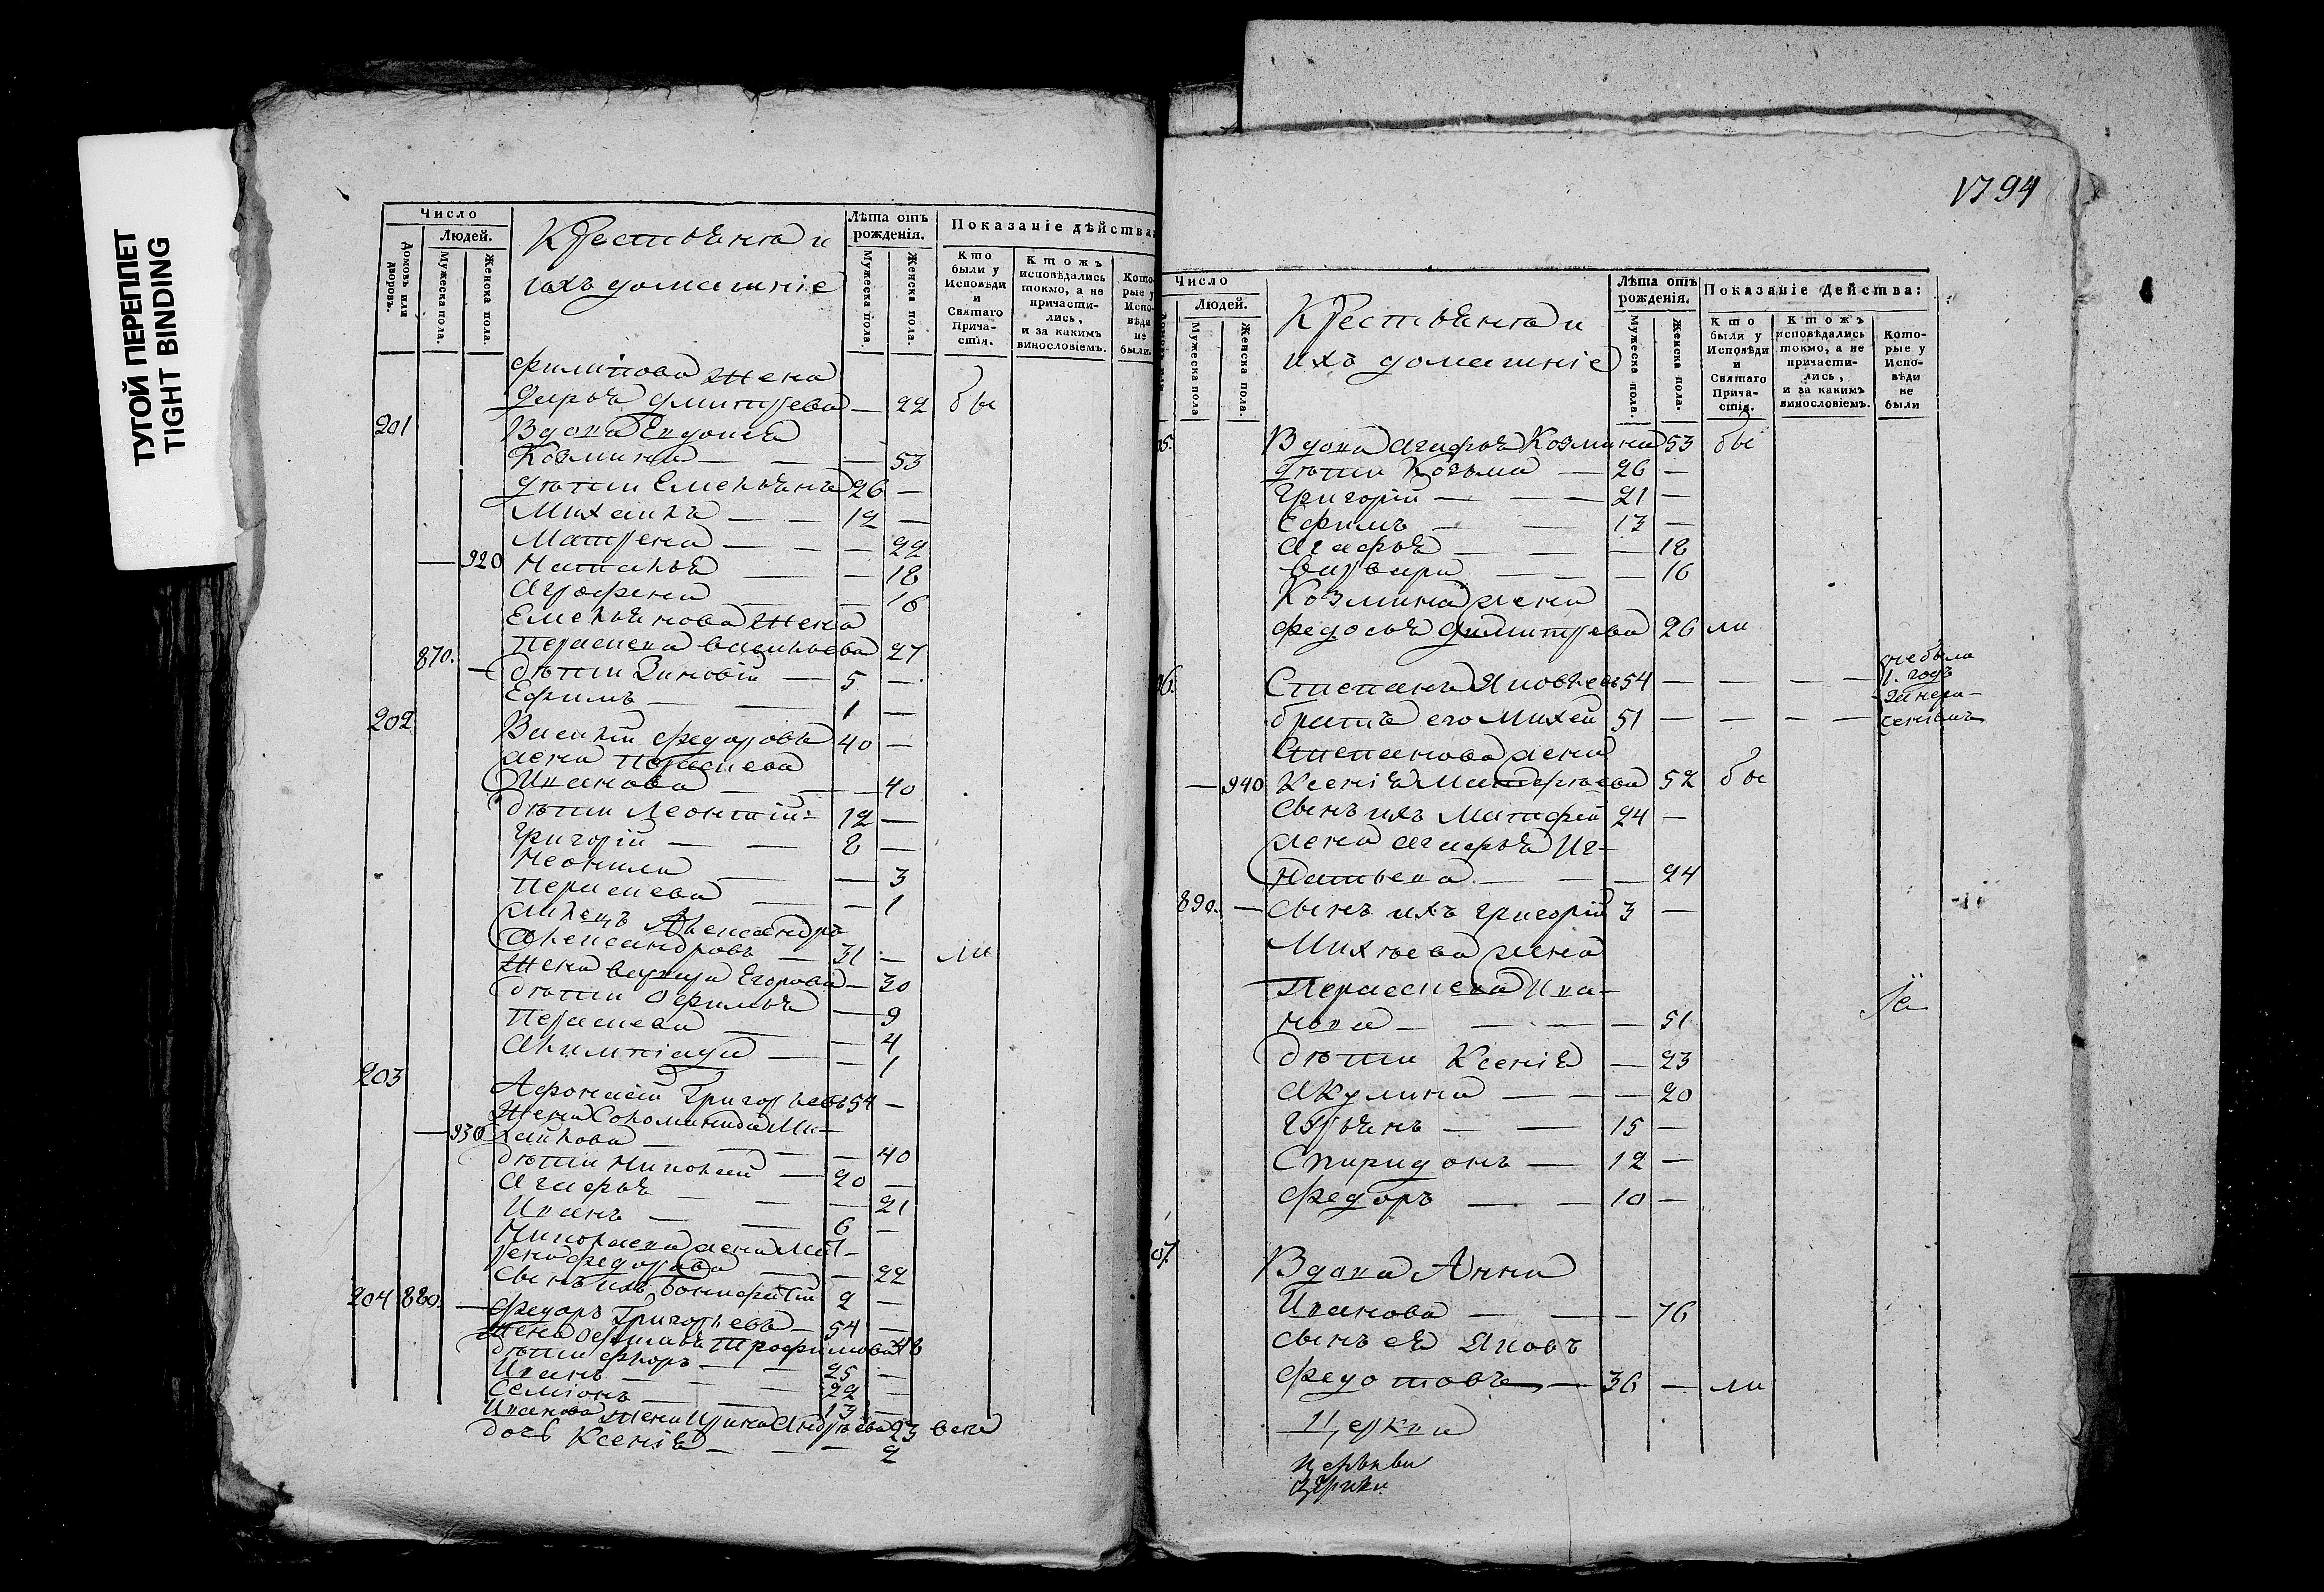 ТУГОЙ ПЕРЕПЛЕТ
TIGHT BINDING
Число
Людей.
Домовъ или дворовъ.
Мужеска пола.
Женска пола.
Крестьяня и
ихъ домашніе
Лѣта отъ рожденія.
Мужеска пола.
Женска пола.
Показаніе дѣйства
Кто были у Исповѣди и Святаго Причастія.
Ктожъ исповѣдались токмо, а не причастились, и за какимъ винословіемъ.
Которые у Исповѣди не были.
Филипова жена
Дарья Дмитрева — 22 бы
201 Вдова Евдокия
Козмина — — — 53
дѣти Емельянъ 26 —
Михаилъ — — 12 —
Матрена — — — 22
— 920 Наталья — — 18
Агрофена — — 16
Емельянова жена
Пераскева васильева 27
870. — дѣти Зиновій — 5 —
Ефимъ — — 1 —
202 Василій Федоровъ 40 —
жена Пераскева
Иванова — — — 40
дѣти Леонтій — 12 —
Григорій — — 8 —
Неонила — — 3
Пераскева — — 1
Александръ
Александровъ — 31 — ли
жена варвара Егорова — 30
дѣти Ефимья — 9
Пераскева — — 4
Акилина — — 1
203 Афонасій Григорьевъ 54 —
жена Соломанида Ми-
— 930 хайлова — — — 40
дѣти Николай — 20 —
Агафья — — — 21
Иванъ — — 6 —
Николаева жена Мат-
рена Федорова — — 22
сынъ ихъ Бонифатій 2 —
204 880. — Федоръ Григорьевъ — 54 —
жена Трофимова 48
дѣти Флоръ — — 25 —
Иванъ — — 22 —
Семіонъ — — 13 —
Иванова жена Ирина Андрѣева 23
дочь Ксенія — — — 2
1794
Число
Людей.
Мужеска пола
Женска пола.
Крестьяня и
ихъ домашніе
Лѣта отъ рожденія.
Мужеска пола.
Женска пола.
Показаніе Действа:
Кто были у Исповѣди и Святаго Причастія.
Ктожъ исповѣдались токмо, а не причастились, и за какимъ винословіемъ.
Которые у Исповѣди не были
05. Вдова Агафья Козмина 53 бы
дѣти Козьма — 26 —
Григорій — — — 21 —
Ефимъ — — 13 —
Агафья — — — 18
варвара — — — 16
Козмина жена
Федосья Димитрева 26 ли
06. Степанъ Яковлевъ 54 — — — — не были 1. годъ
братъ его Михей 51 — — — —
Степанова жена
— 940 Ксенія Матфѣева 52 бы
сынъ ихъ Матфей 24 —
жена агафья Иг-
натьева — — — 24
890. — сынъ ихъ Григорій 3 —
Михѣева жена
Пераскева Ива-
нова — — — — 51
дѣти Ксенія — 23
Акулина — — — 20
Гурьянъ — — 15 —
Спиридонъ — 12 —
Федоръ — — 10 —
07. Вдова Анна
Иванова — — — 76
сынъ ея Яковъ
Федотовъ — 36 — ли
Церкви
церкви